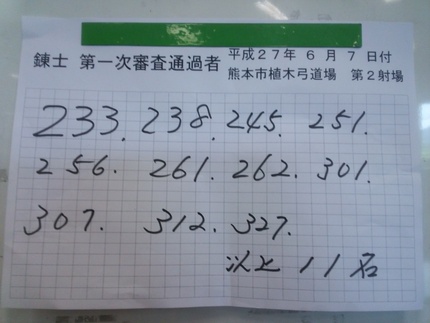 錬士 第一次審査通過者 平成27年 6月 7日付
熊本市植木弓道場 第2射場
233. 238. 245. 251.
256. 261. 262. 301.
307. 312. 327.
以上 11名